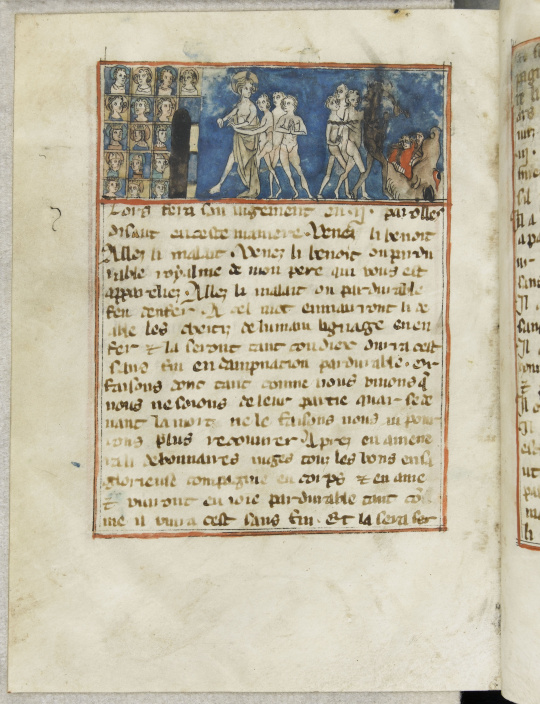 Lors fera son iugement en .ij. parolles
disant en ceste maniere. Venez li benoit
Allez li maloit. Venez li benoit ou pardu
rable royalme de mon pere qui vous est
apparelliez. Allez li maloit ou pardurable
feu denfer. A cel mot enmanront li de
able les chetiz dehumain lignage en en
fer et la seront tant con diex vivra cest
sanz fin en dampnation pardurable. Or
faisons donc tant comme nous vivons q̄
nous ne soions de leur partie quar se de
nant la mort ne le faisons nous ni pour
rons plus recouvrer. Apres en amene
ra li debonnaires iuges touz les bons en sa
glorieuse compagnie en cors et en ame
et vivront en ioie pardurable tant cō
me il vivra cest sans fin. Et la sera fer